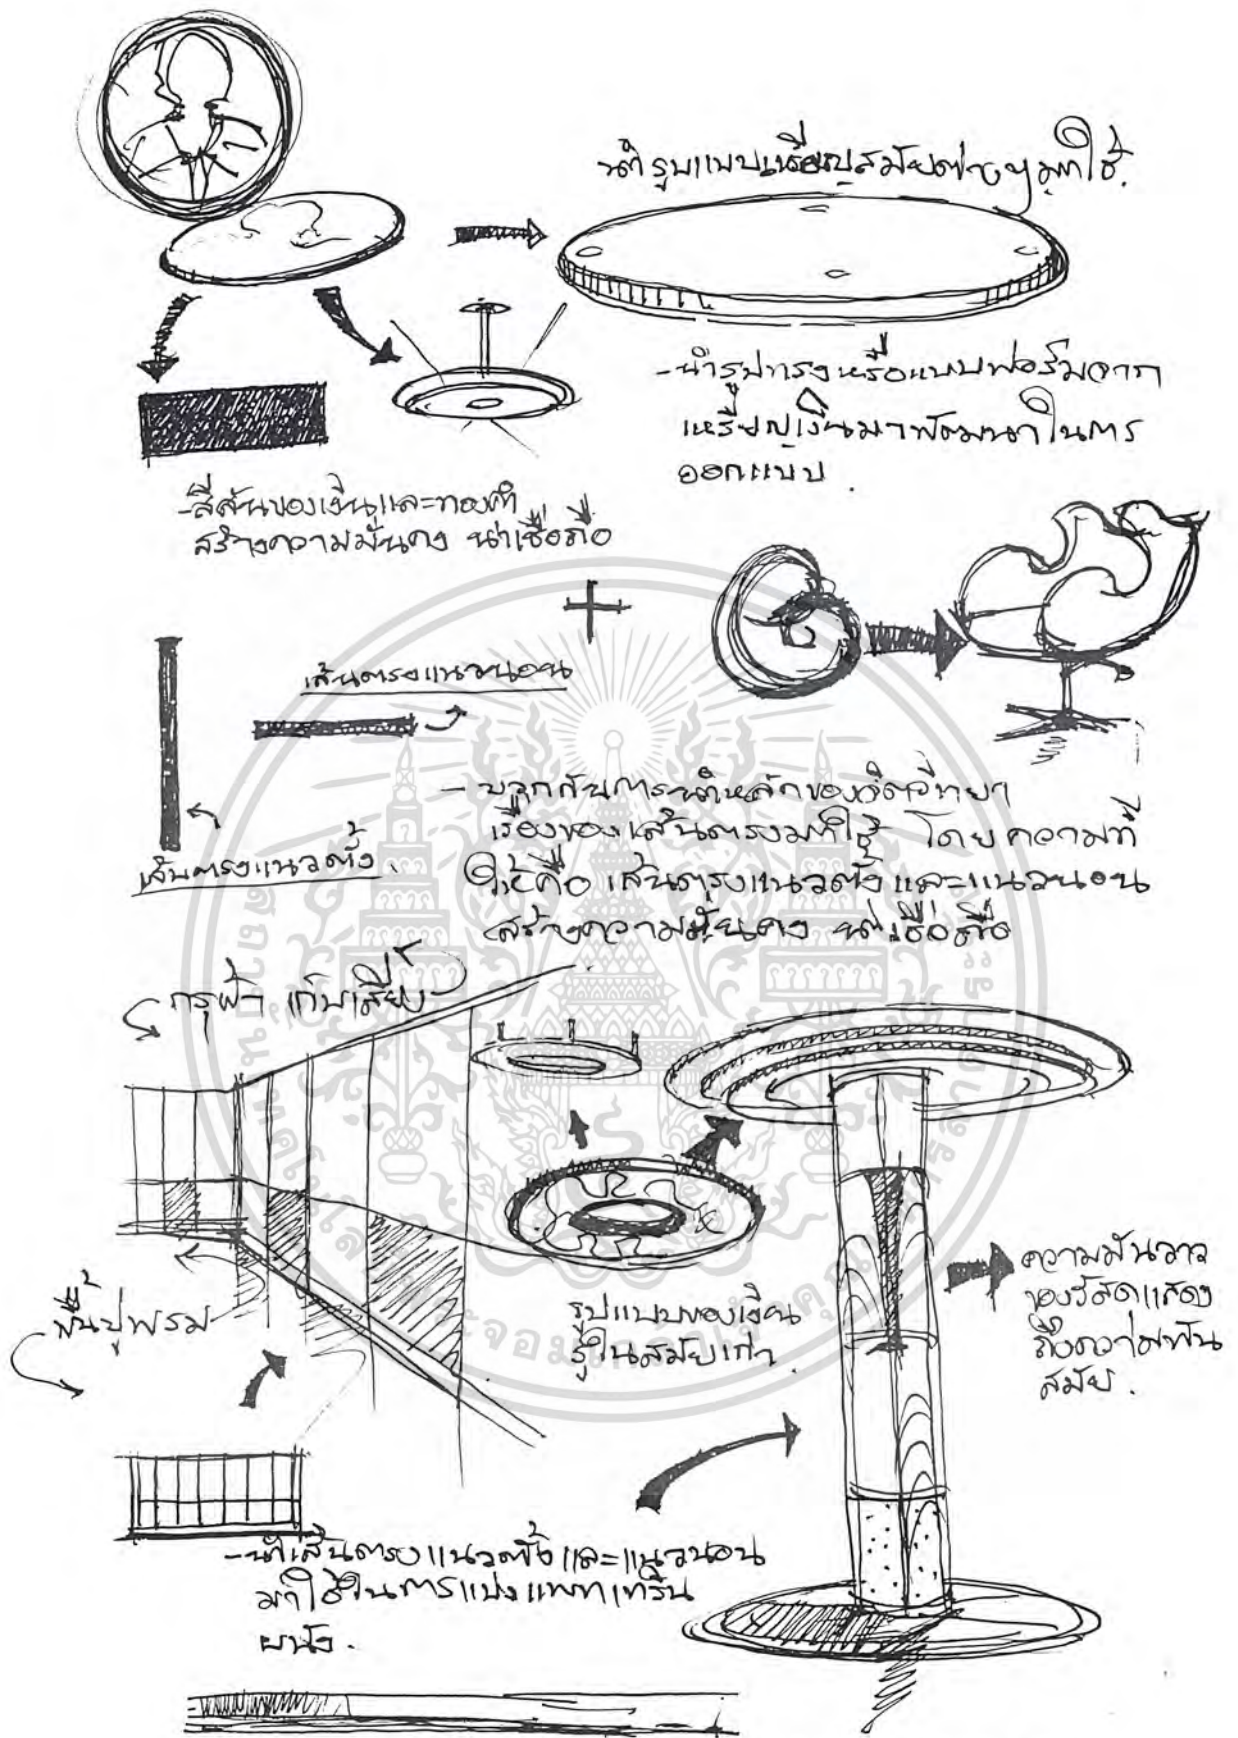 นำรูปแบบเหรียญสมัยต่างๆมาใช้.
-นำรูปทรงหรือแบบฟอร์มจาก
เหรียญเงินมาพัฒนาในการ
ออกแบบ.
-สีสันของเงินและทองคำ
สร้างความมั่นคง น่าเชื่อถือ
+
เส้นตรงแนวนอน
เส้นตรงแนวตั้ง.
- บวกกับการนำหลักของจิตวิทยา
เรื่องของเส้นตรงมาใช้ โดยความที่
ให้คือ เส้นตรงแนวตั้ง และแนวนอน
สร้างความมั่นคง น่าเชื่อถือ
กรุผ้า เก็บเสียง
พื้นปูพรม
รูปแบบของเงิน
รูในสมัยเก่า.
ความมันวาว
ของวัสดุแสดง
ถึงความทัน
สมัย.
-นำเส้นตรงแนวตั้งและแนวนอน
มาใช้ในการแบ่งแพทเทริ์น
ผนัง.